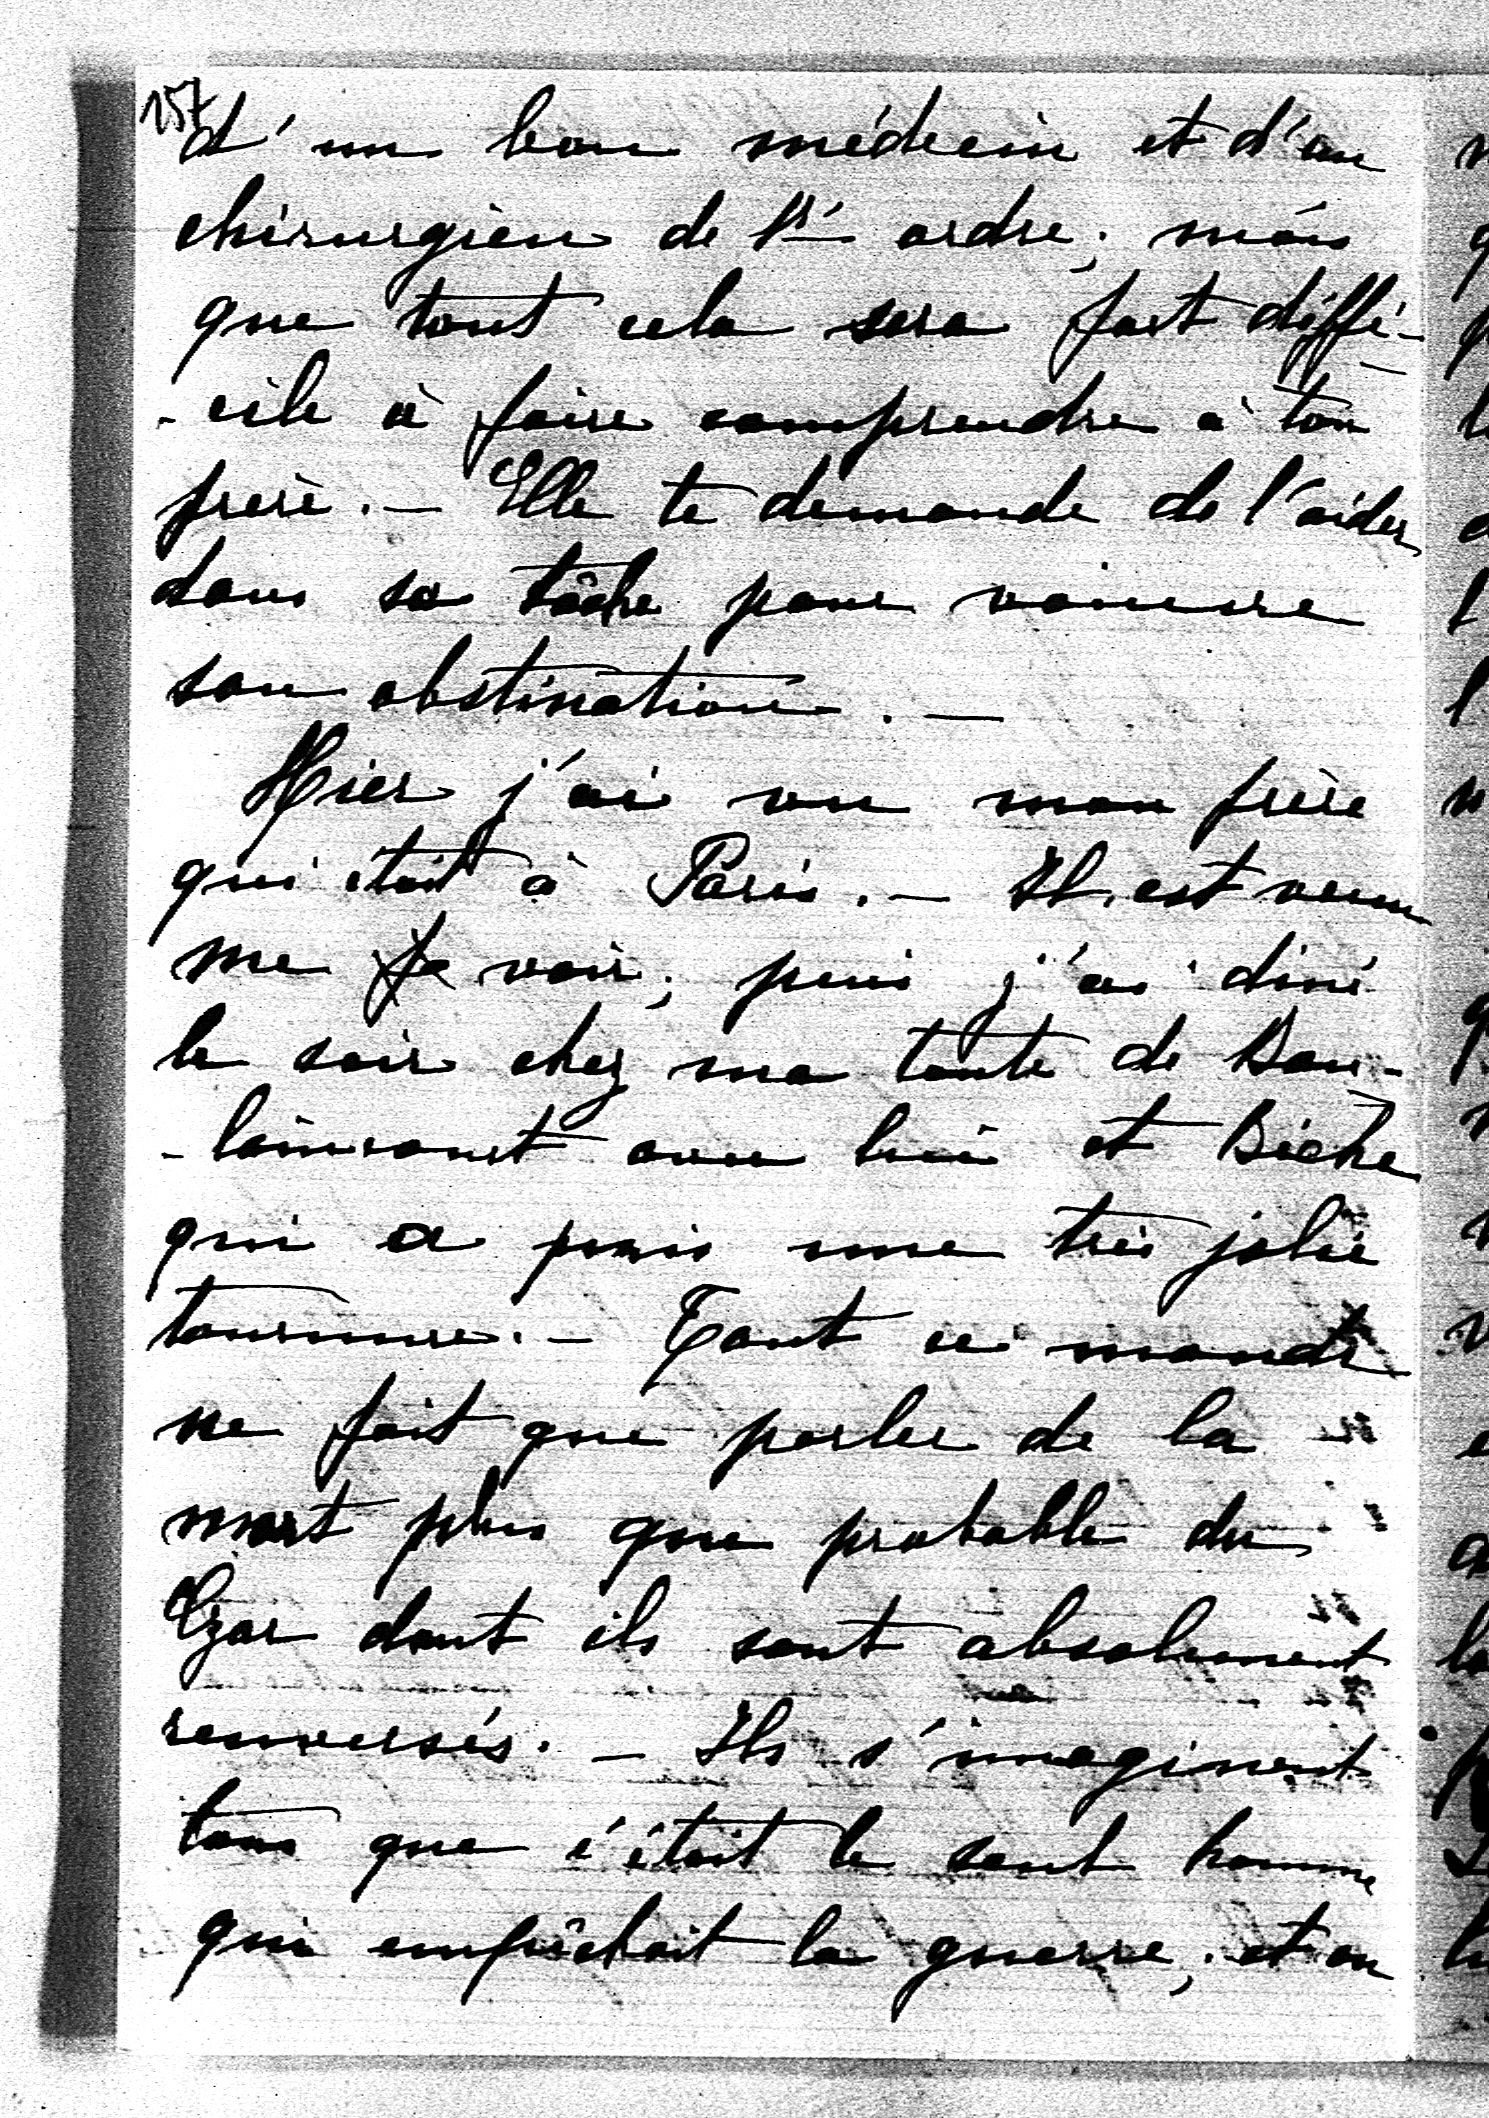 157
d'un bon médecin et d'un
chirurgien de 1er ordre; mais
que tout cela sera fort diffi-
-cile à faire comprendre à ton
frère. — Elle te demande de l'aider
dans sa tâche pour vaincre
son obstination. —
Hier j'ai vu mon frère
qui était à Paris. — Il est venu
me voir; puis j'ai diné
le soir chez ma tante de Bou-
-laincourt avec lui et Biche
qui a pris une très jolie
tournure. — Tout ce monde
ne fait que parler de la
mort plus que probable du
Czar dont ils sont absolument
renversés. — Ils s'imaginent
tous que c'était le seul homme
qui empêchait la guerre, et on